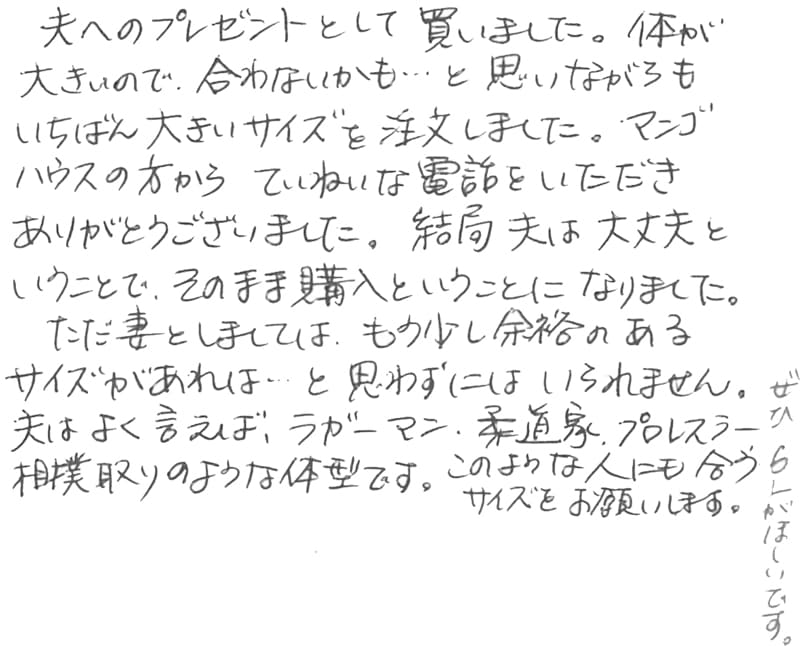 夫へのプレゼントとして買いました。体が
大きいので、合わないかも…と思いながらも
いちばん大きいサイズを注文しました。マンゴ
ハウスの方からていねいな電話をいただき
ありがとうございました。結局夫は大丈夫と
いうことで、そのまま購入ということになりました。
ただ妻としましては、もう少し余裕のある
サイズがあれば…と思わずにはいられません。
夫はよく言えば、ラガーマン、柔道家、プロレスラー
相撲取りのような体型です。このような人にも合う
サイズをお願いします。
ぜひ6Lがほしいです。